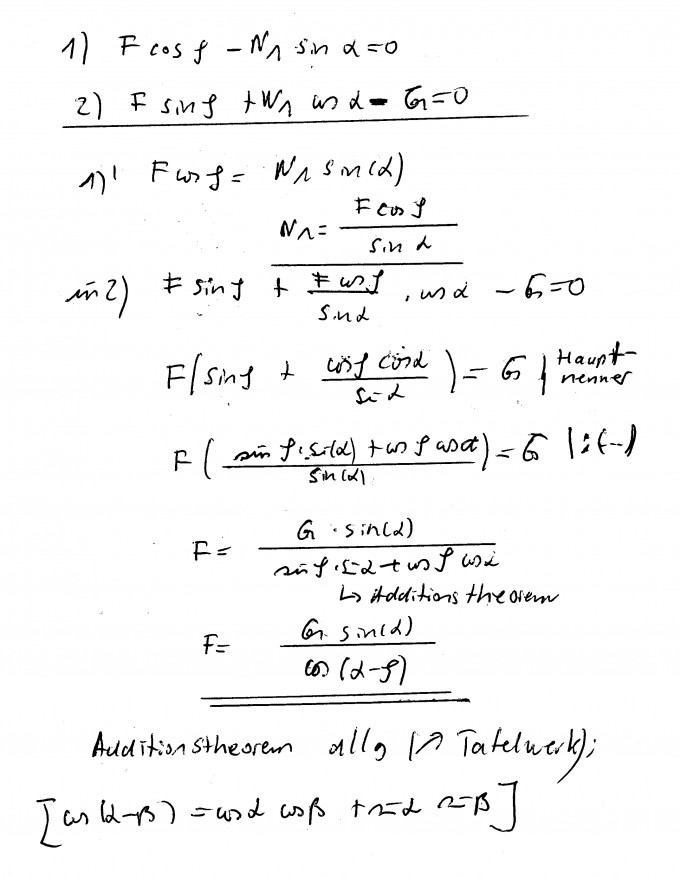 1) F cos ρ - N₁ sin α = 0
2) F sin ρ + N₁ cos α - G = 0
1)' F cos ρ = N₁ sin(α)
N₁ = F cos ρ / sin α
in 2) F sin ρ + F cos ρ / sin α · cos α - G = 0
F ( sin ρ + cos ρ cos α / sin α ) = G | Hauptnenner
F ( sin ρ · sin(α) + cos ρ cos α / sin(α) ) = G | : (–)
F = G · sin(α) / sin ρ · sin α + cos ρ cos α
↳ Additionstheorem
F = G · sin(α) / cos (α-ρ)
Additionstheorem allg (↗ Tafelwerk);
[cos (α-β) = cos α cos β + sin α sin β]